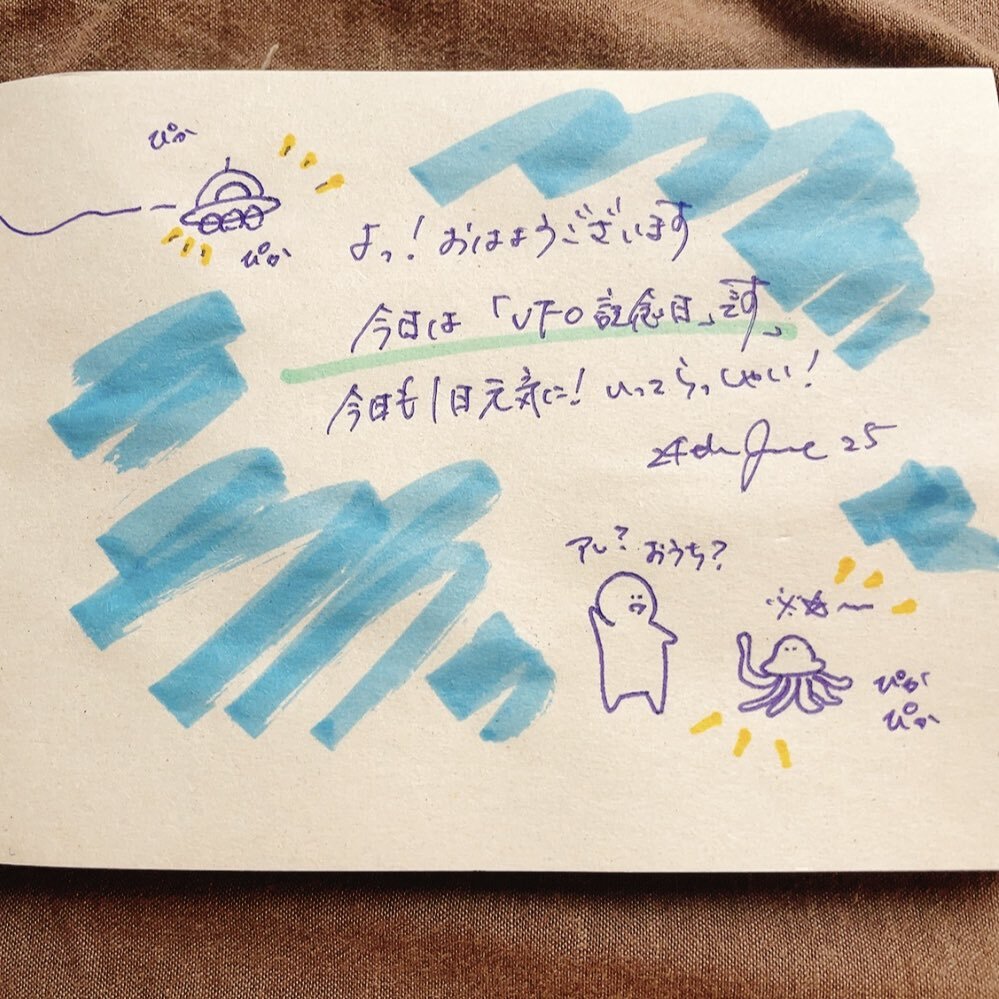 ぴか
ぴか
よっ!おはようございます
今日は「UFO記念日」です、
今日も1日元気に!いってらっしゃい!
24th June 25
アレ?おうち?
ぴか
ぴか